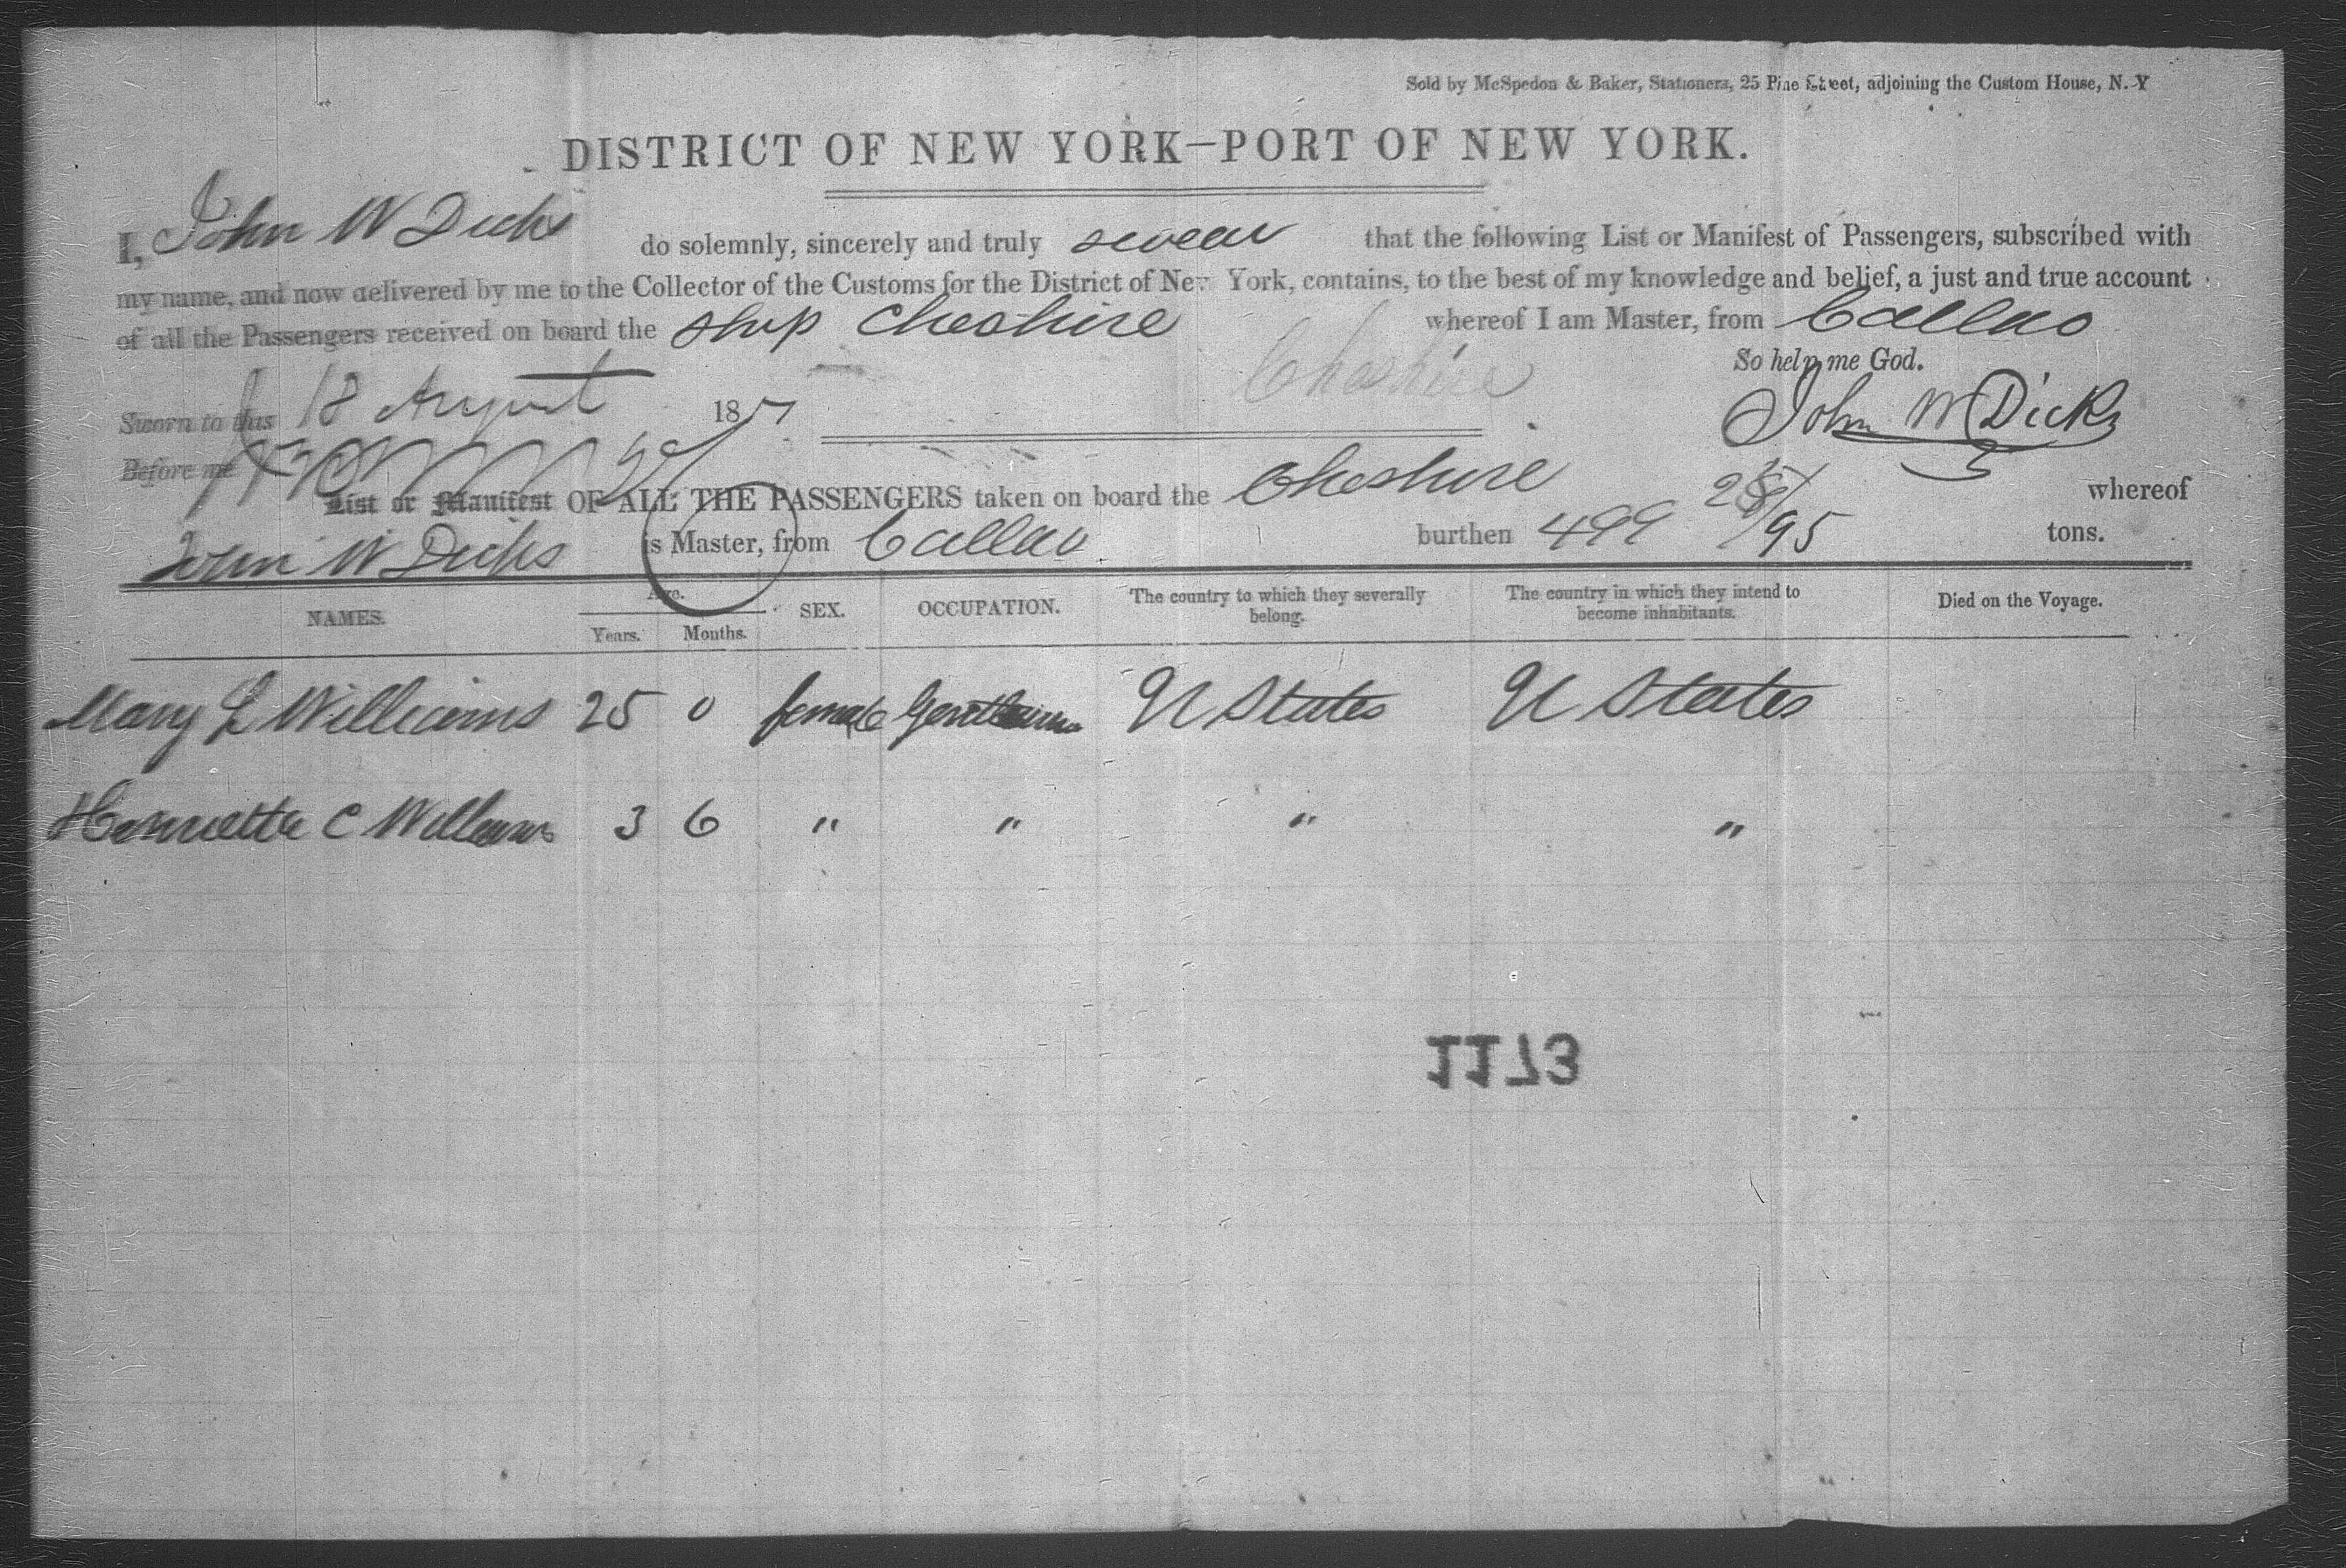 Sold by McSpedon & Baker, Stationers, 25 Pine Street, adjoining the Custom House, N. Y
DISTRICT OF NEW YORK—PORT OF NEW YORK.
I, John W Dicks do solemnly, sincerely and truly swear that the following List or Manifest of Passengers, subscribed with
my name, and now delivered by me to the Collector of the Customs for the District of New York, contains, to the best of my knowledge and belief, a just and true account
of all the Passengers received on board the Ship Cheshire whereof I am Master, from Callao
So help me God.
Cheshire
Sworn to this 18 August 185
John W Dicks
Before me
List or Manifest OF ALL THE PASSENGERS taken on board the Cheshire whereof
John W Dicks is Master, from Callao burthen 499 /95 tons.
NAMES. Age. Years. Months. SEX. OCCUPATION. The country to which they severally belong. The country in which they intend to become inhabitants. Died on the Voyage.
Mary L Williams 25 0 female U States U States
Henrietta C Williams 3 6 " " " "
1173